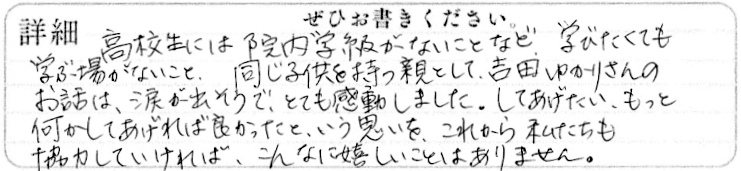 ぜひお書きください。
詳細 高校生には院内学級がないことなど、学びたくても
学ぶ場がないこと、同じ子供を持つ親として、吉田ゆかりさんの
お話は、涙が出そうで、とても感動しました。してあげたい、もっと
何かしてあげれば良かったと、いう思いを、これから私たちも
協力していければ、こんなに嬉しいことはありません。